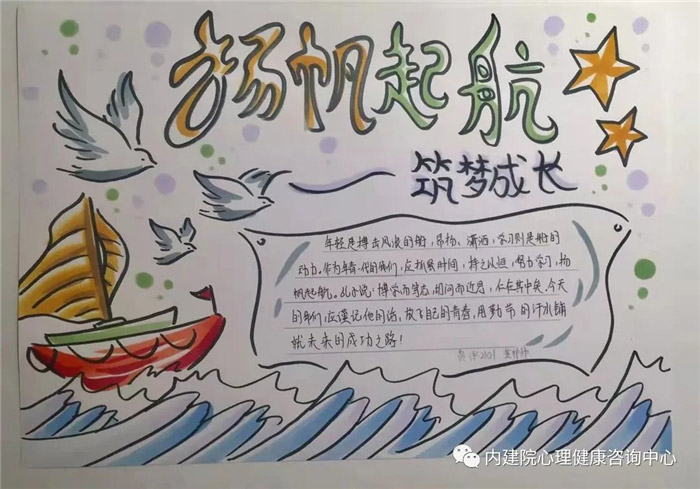 扬帆起航
——筑梦成长
年轻是搏击风浪的船，昂扬、潇洒，学习则是船的
动力。作为年青一代的我们，应抓紧时间，持之以恒，努力学习，扬
帆起航。孔子说：博学而笃志，切问而近思，仁在其中矣。今天
的我们，应谨记他的话，放飞自己的青春，用勤劳的汗水铺
就未来的成功之路！
2101
内建院心理健康咨询中心